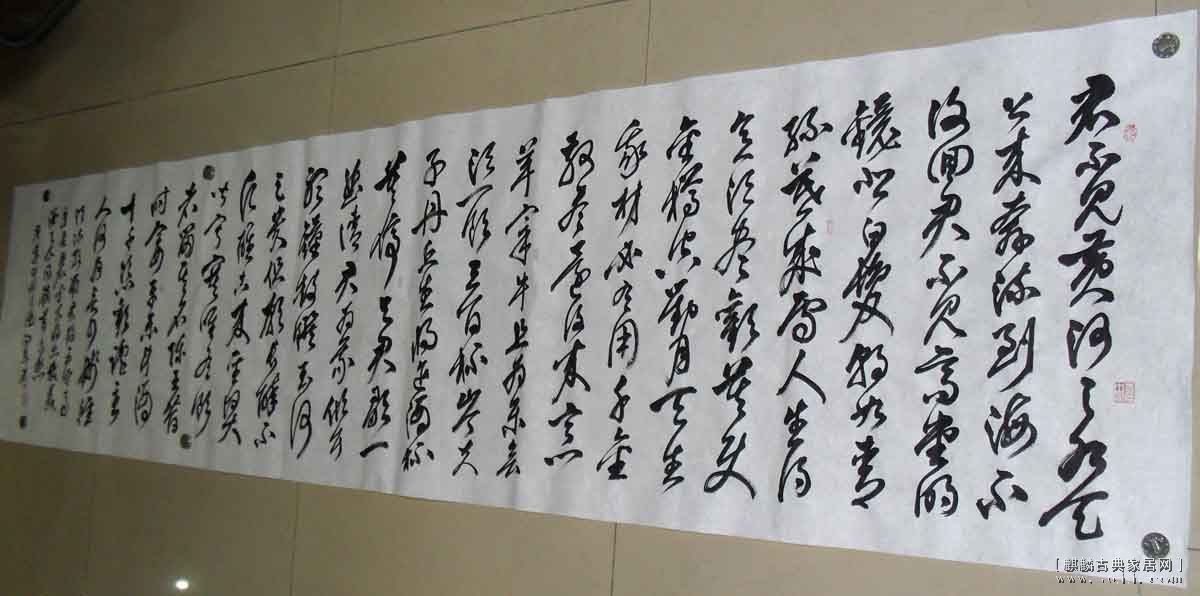 君不见黄河之水天
上来奔流到海不
复回君不见高堂明
镜悲白发朝如青
丝暮成雪人生得
意须尽欢莫使
金樽空对月天生
我材必有用千金
散尽还复来烹
羊宰牛且为乐会
须一饮三百杯岑夫
子丹丘生将进酒杯
莫停与君歌一
曲请君为我倾耳
听钟鼓馔玉何
足贵但愿长醉不
复醒古来圣贤
皆寂寞惟有饮
者留其名陈王昔
时宴平乐斗酒
十千恣欢谑主
人何为言少钱径
须沽取对君酌五花马
千金裘呼儿将出换美
酒与尔同销万古愁
[麒麟古典家居网]